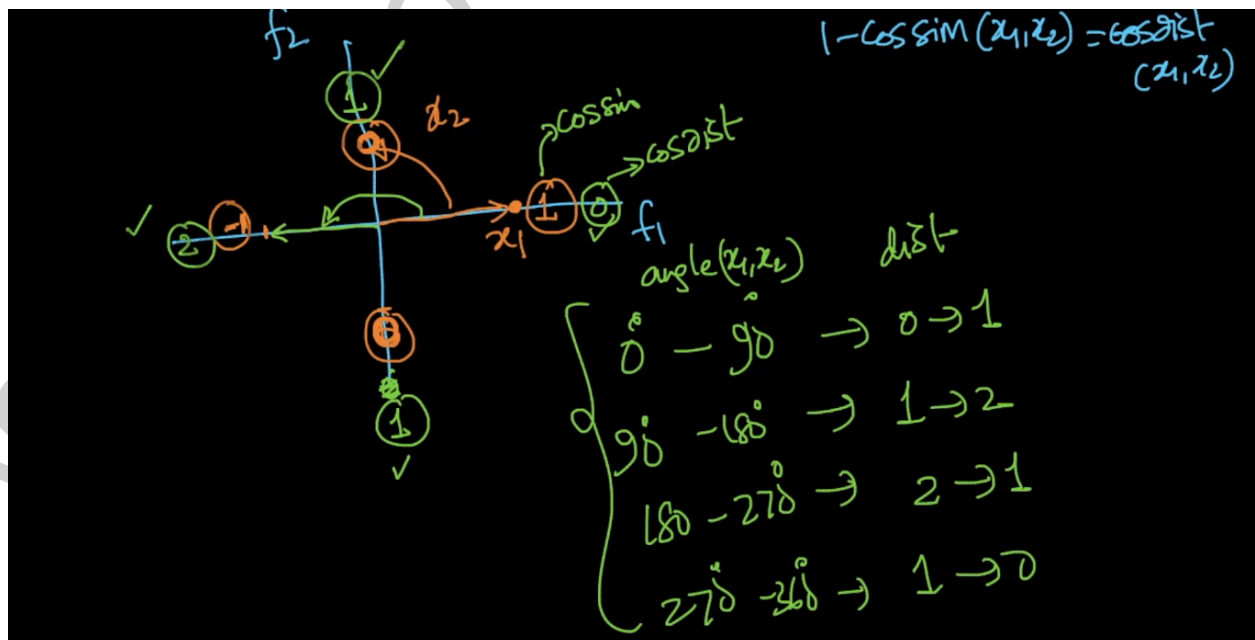 f2
1-cossim(x1,x2) = cosdist
(x1,x2)
1
0
x2
cossim
cosdist
1
0
f1
x1
-1
2
angle(x1,x2) dist
0° - 90° → 0→1
90° - 180° → 1→2
0
1
180 - 270° → 2→1
270° - 360° → 1→0